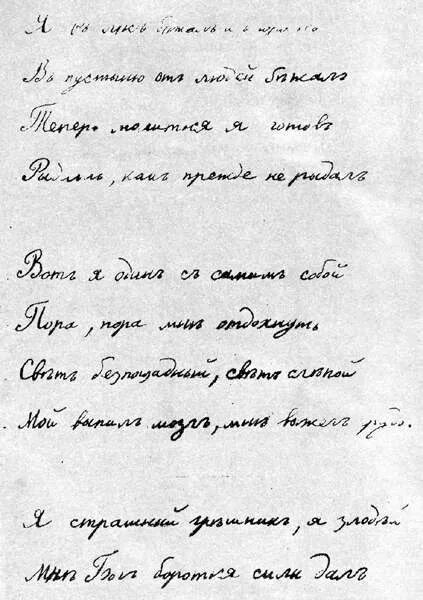 Я
Въ пустыню отъ людей бѣжалъ
Теперь молиться я готовъ
Рыдать, какъ прежде не рыдалъ
Вотъ я одинъ съ самимъ собой
Пора, пора мнѣ отдохнуть
Свѣтъ безпощадный, свѣтъ слѣпой
Мой выпилъ мозгъ, мнѣ выжегъ грудь.
Я страшный грѣшникъ, я злодѣй
Мнѣ Богъ бороться силы далъ